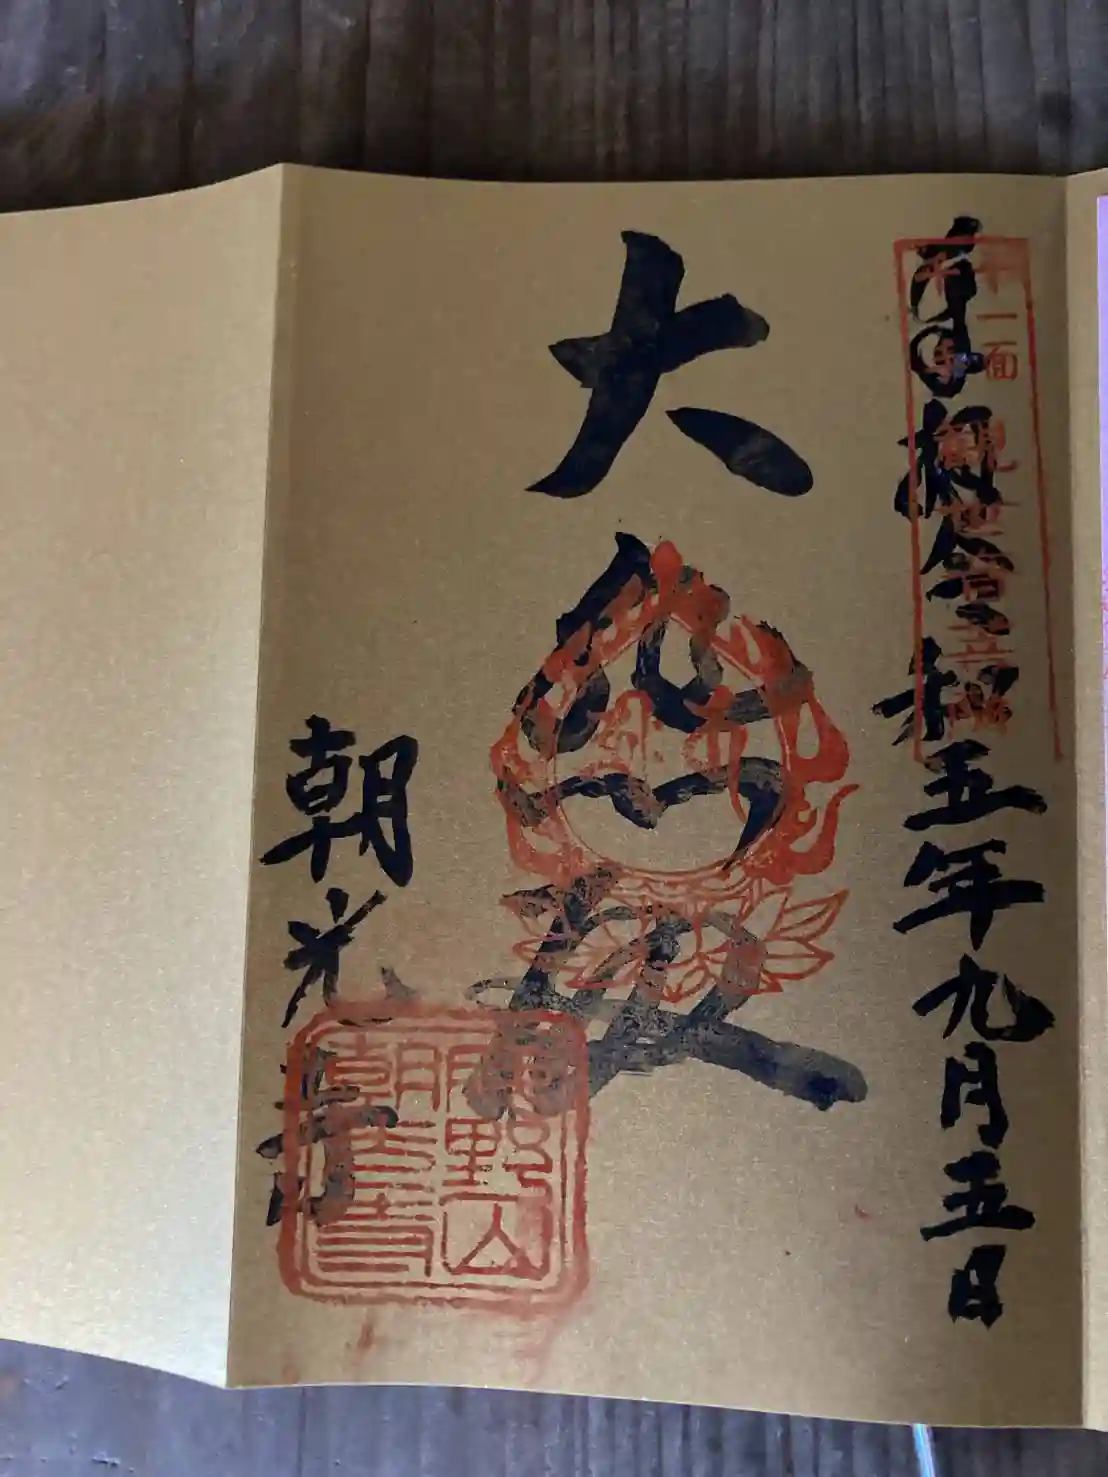 奉拝 令和五年九月五日
十一面
千手
観世音菩薩
大悲殿
朝光寺
鹿野山
朝光寺